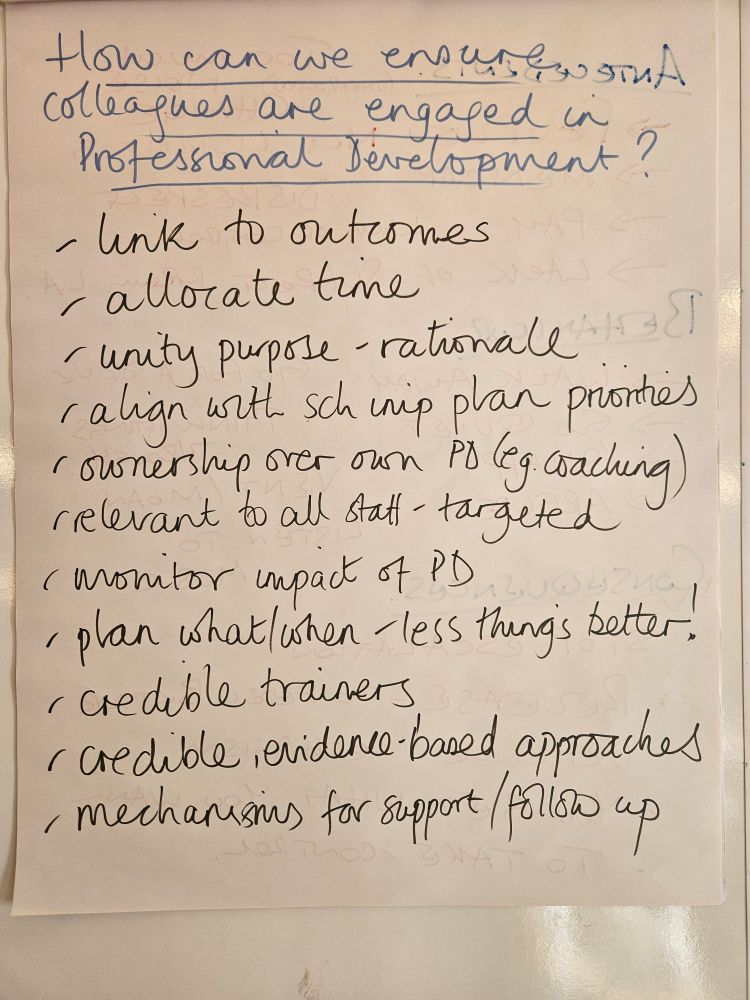 How can we ensure
colleagues are engaged in
Professional Development?
- link to outcomes
- allocate time
- unity purpose - rationale
- align with sch imp plan priorities
- ownership over own PD (eg. coaching)
- relevant to all staff - targeted
- monitor impact of PD
- plan what/when - less things better!
- credible trainers
- credible, evidence-based approaches
- mechanisms for support/follow up
ANTECEDENTS
DISRESPECT
→ PAY
→ LACK OF
BEHAVIOUR
LISTEN TO
CONSEQUENCES
RELEASE
TO TAKE CONTROL